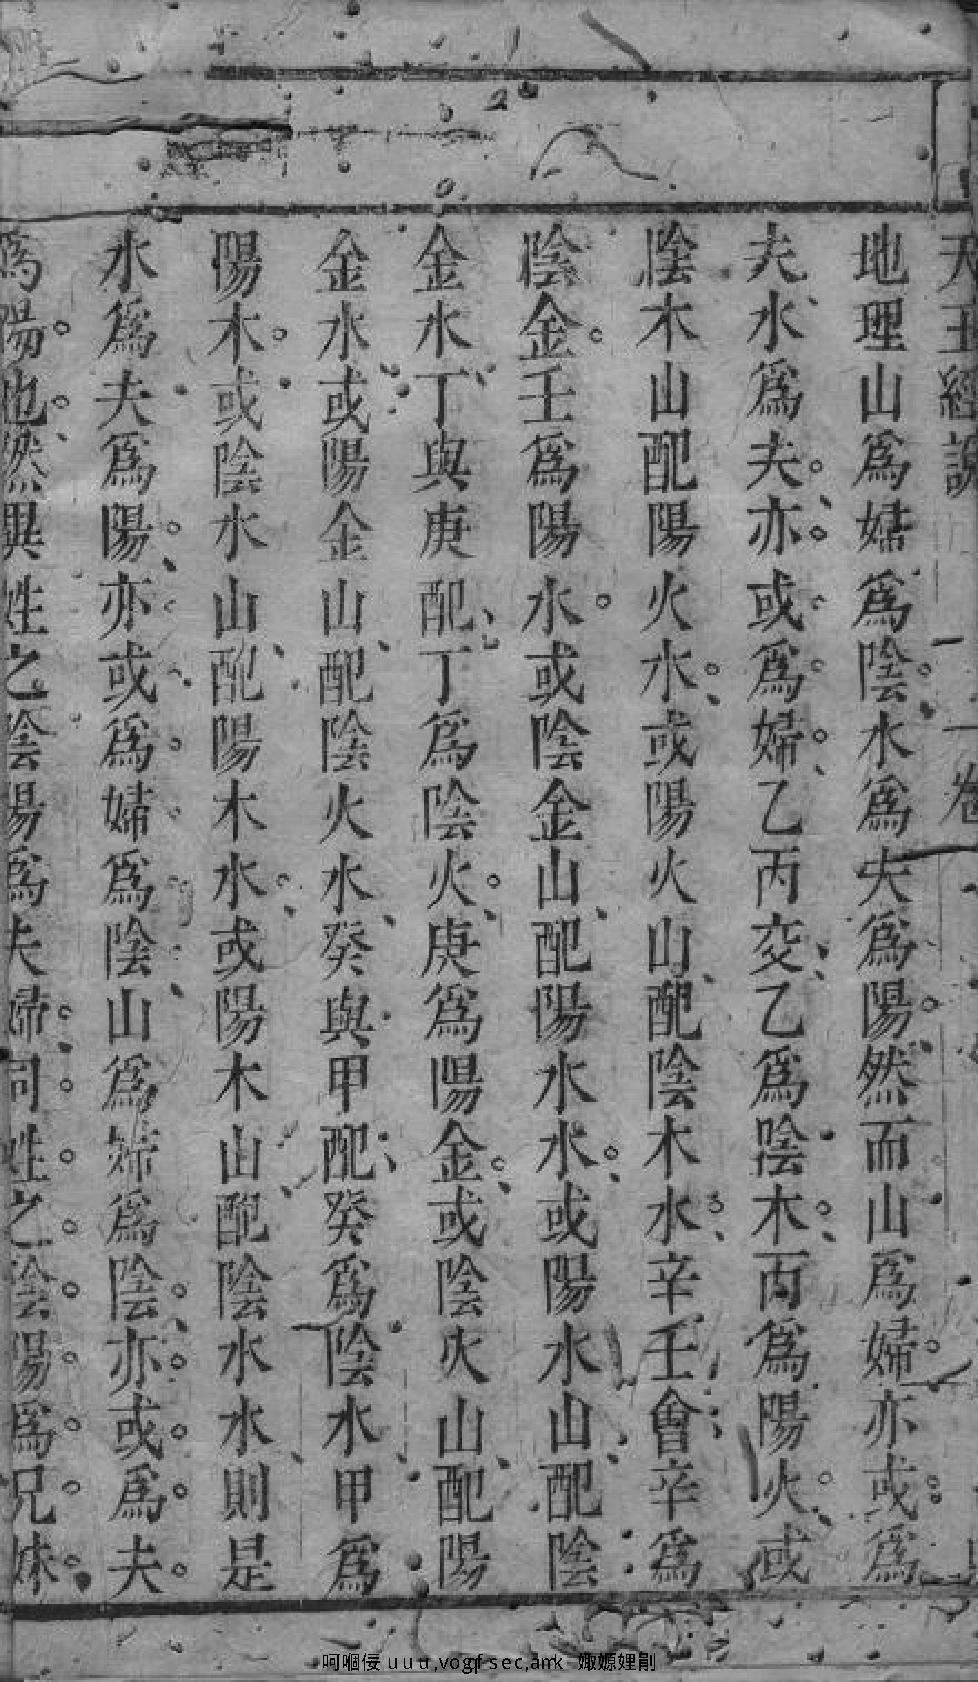 天玉經說 一卷
地理山爲婦爲陰水爲夫爲陽然而山爲婦亦或爲
夫水爲夫亦或爲婦乙丙交乙爲陰木丙爲陽火或
陰木山配陽火水或陽火山配陰木水辛壬會辛爲
陰金壬爲陽水或陰金山配陽水水或陽水山配陰
金水丁與庚配丁爲陰火庚爲陽金或陰火山配陽
金水或陽金山配陰火水癸與甲配癸爲陰水甲爲
陽木或陰水山配陽木水或陽木山配陰水水則是
水爲夫爲陽亦或爲婦爲陰山爲婦爲陰亦或爲夫
爲陽也然異姓之陰陽爲夫婦同姓之陰陽爲兄妹
呵嗰偠 u u u,vogf sec,amk 娵嫄娌剬